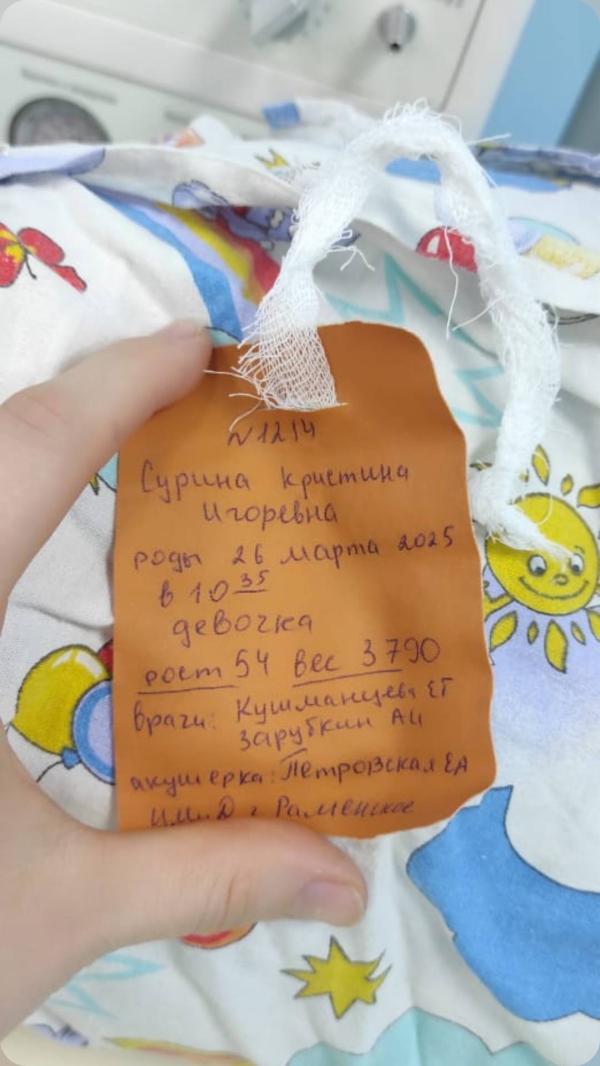 N1214
Сурина Кристина
Игоревна
роды 26 марта 2025
в 10 35
девочка
рост 54 вес 3790
врачи: Кушманцева ЕГ
Зарубкин АИ
акушерка: Петровская ЕА
г. Раменское